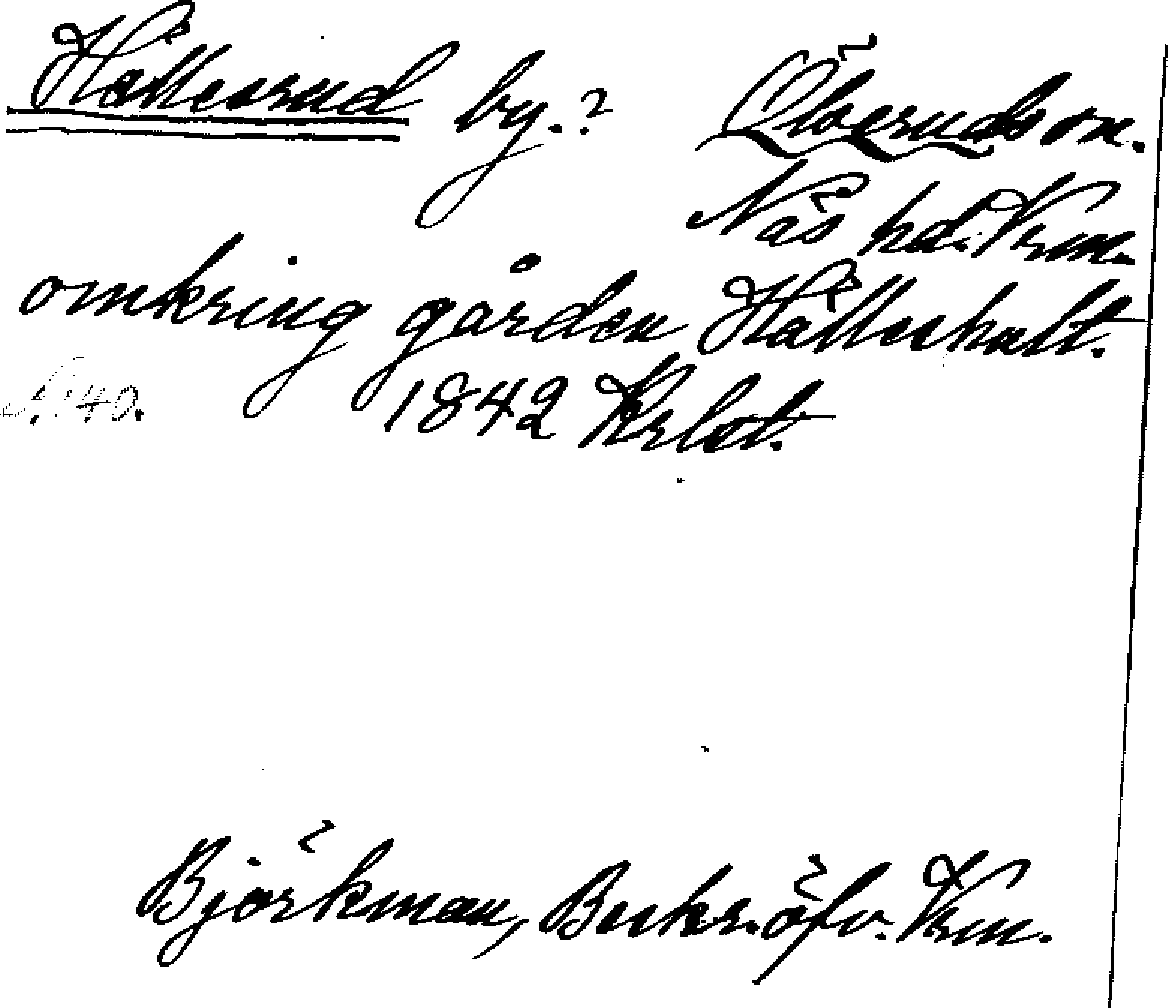 Hällesrud by.? Ölseruds sn.
Näs hd. Vrm.
omkring gården Hällesholt.
s. 140. 1842 Krlst.
Björkman, Beskr. öfv. Vrm.